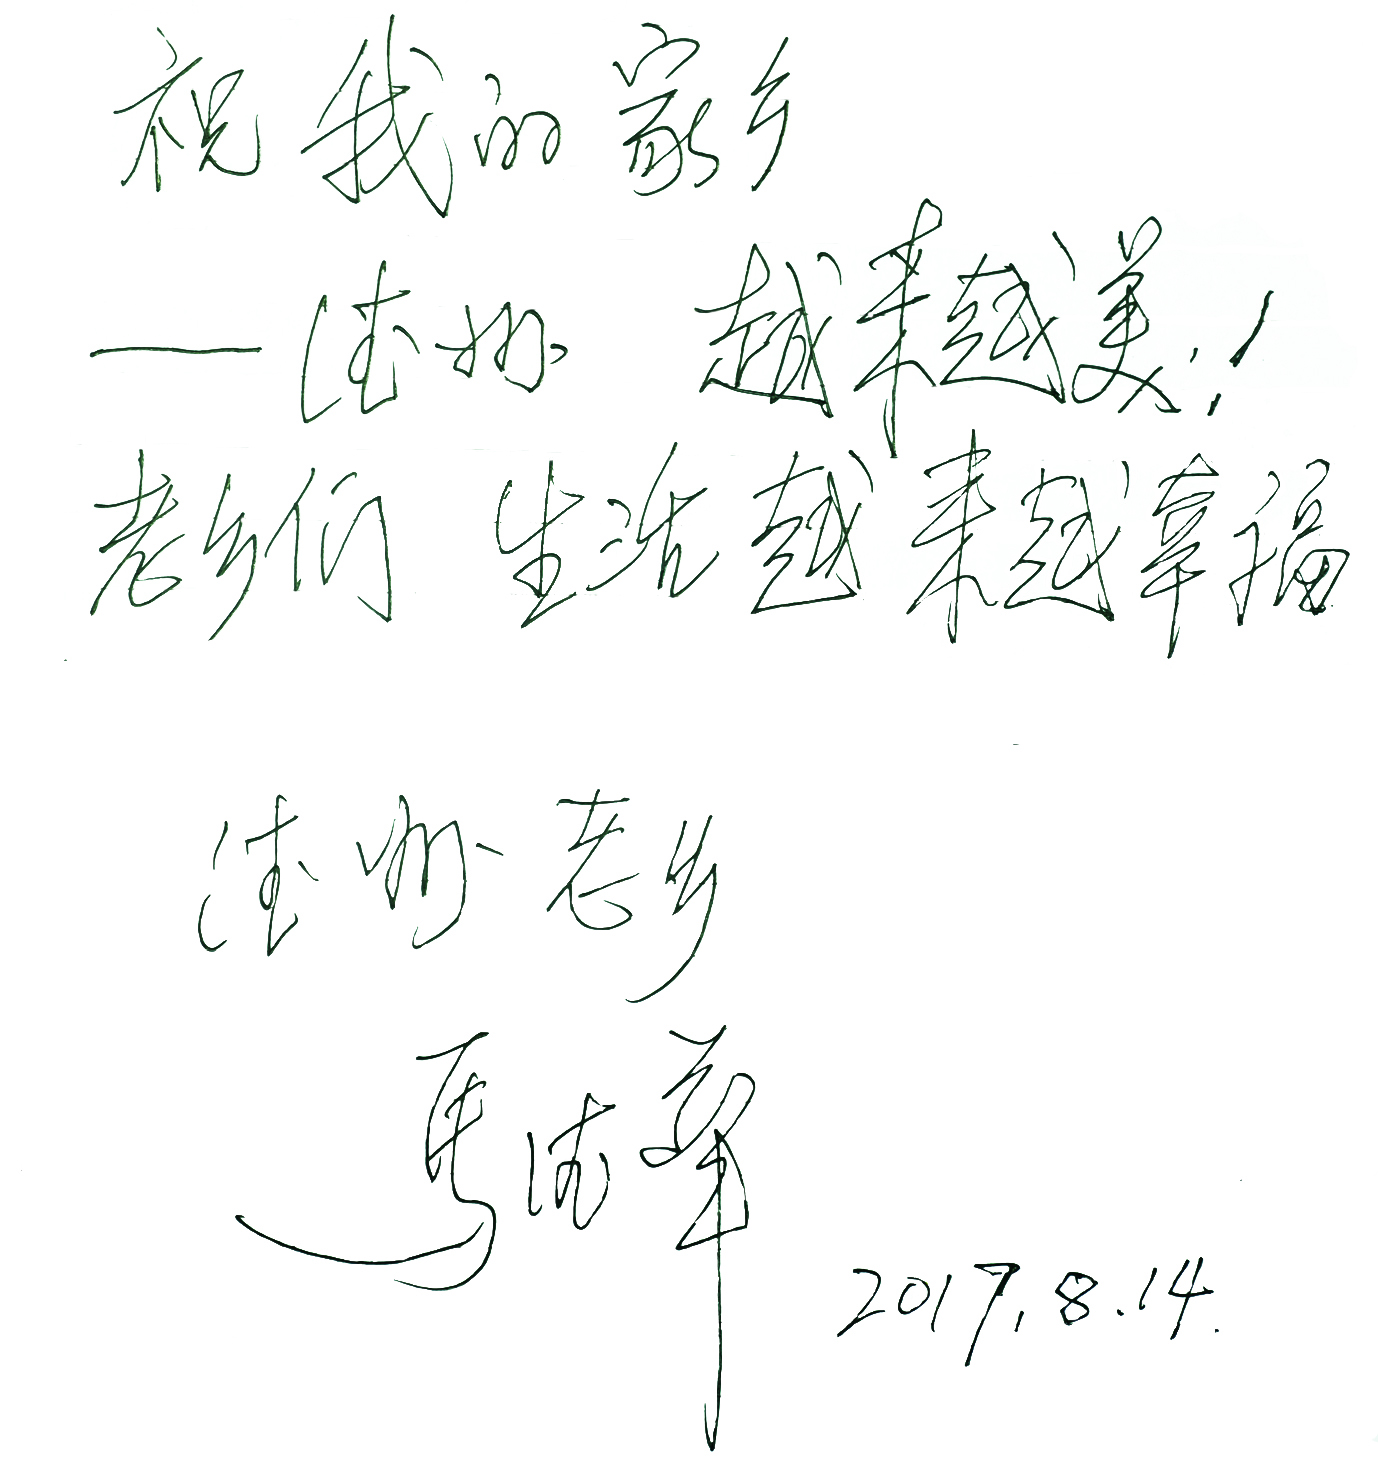 祝我的家乡
——德州 越来越美!
老乡们 生活越来越幸福
德州老乡
马德华
2017.8.14.